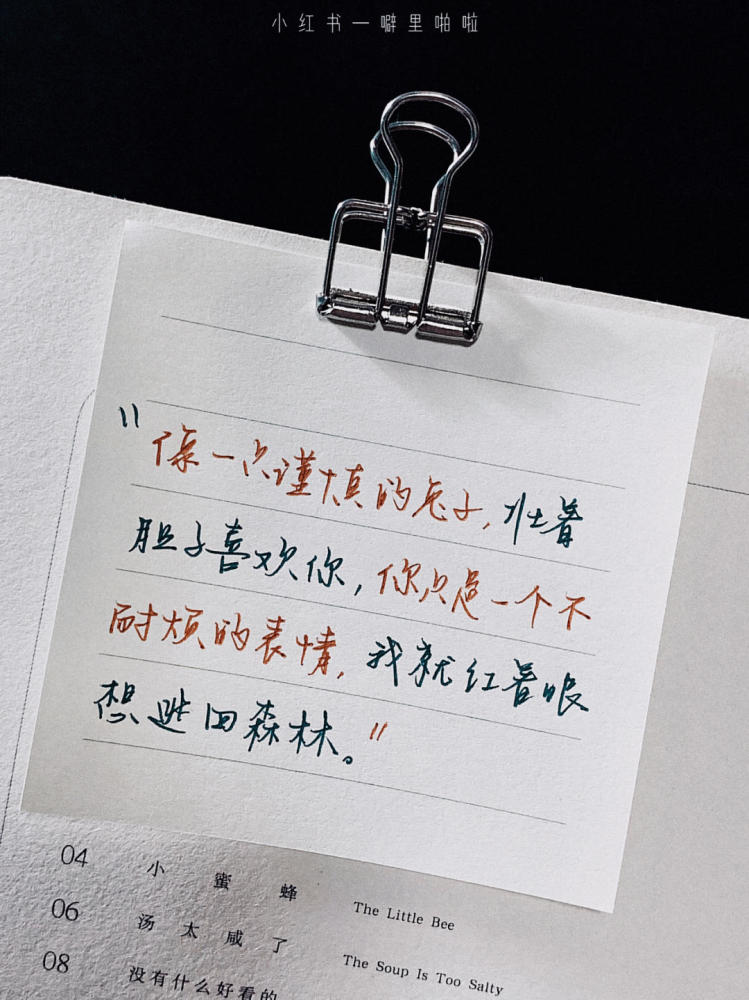 小红书一噼里啪啦
"像一只谨慎的兔子,壮着
胆子喜欢你,你只是一个不
耐烦的表情,我就红着眼
想逃回森林。"
04 小蜜蜂 The Little Bee
06 汤太咸了 The Soup Is Too Salty
08 没有什么好看的